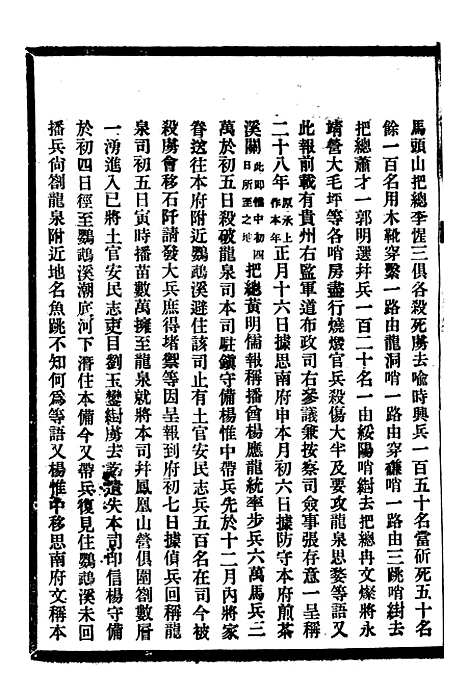 馬頭山把總李惺三俱各殺死虜去喻時興兵一百五十名當斫死五十名
餘一百名用木靴穿繫一路由龍洞哨一路由穿蔴哨一路由三跳哨綁去
把總蕭才一郭明選幷兵一百二十名一由綏陽哨綁去把總冉文燦將永
靖營大毛坪等各哨房盡行燒燬官兵殺傷大半及要攻龍泉思婺等語又
此報前載有貴州右監軍道布政司右參議兼按察司僉事張存意一呈稱
二十八年原承上作本年正月十六日據思南府申本月初六日據防守本府煎茶
溪關此即惟中初四日所至之地把總黃明儒報稱播酋楊應龍統率步兵六萬馬兵三
萬於初五日殺破龍泉司本司駐鎮守備楊惟中帶兵先於十二月內將家
眷送往本府附近鸚鵡溪避住該司止有土官安民志兵五百名在司今被
殺虜會移石阡請發大兵庶得堵禦等因呈報到府初七日據偵兵回稱龍
泉司初五日寅時播苗數萬擁至龍泉就將本司幷鳳凰山營俱圍劄數層
一湧進入已將土官安民志吏目劉玉鑾綁虜去訖遺失本司印信楊守備
於初四日徑至鸚鵡溪潮底河下潛住本備今又帶兵復見住鸚鵡溪未回
播兵尙劄龍泉附近地名魚跳不知何爲等語又楊惟中移思南府文稱本